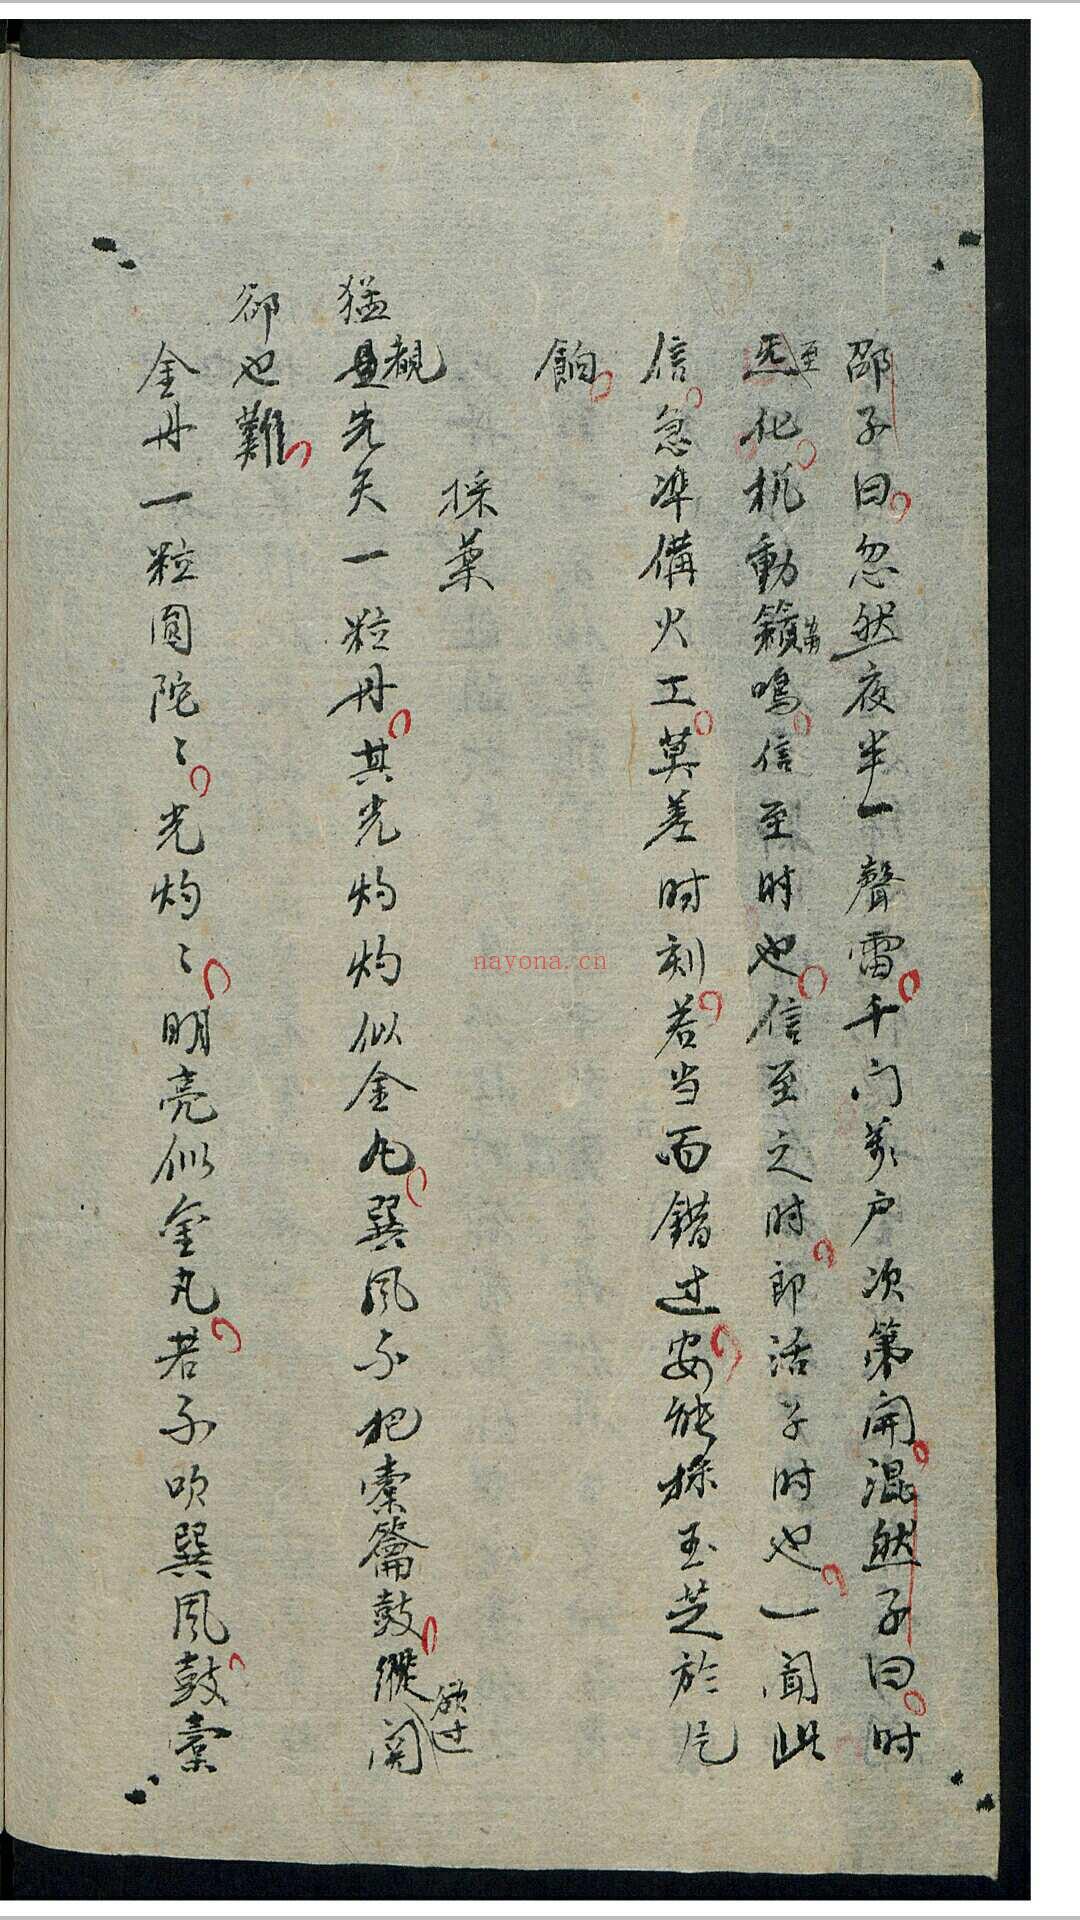 邵子曰忽然夜半一聲雷千门萬户次第開混然子曰时
至炁化机動籟鳴信至时也信至之时即活子时也一闻此
信急準備火工莫差时刻若当面錯过安能採玉芝於片
餉
採藥
猛覩先天一粒丹其光灼灼似金丸巽風不把橐籥鼓縱欲过関
卻也難
金丹一粒圓陀〻光灼〻明亮似金丸若不吹巽風鼓橐
nayona.cn